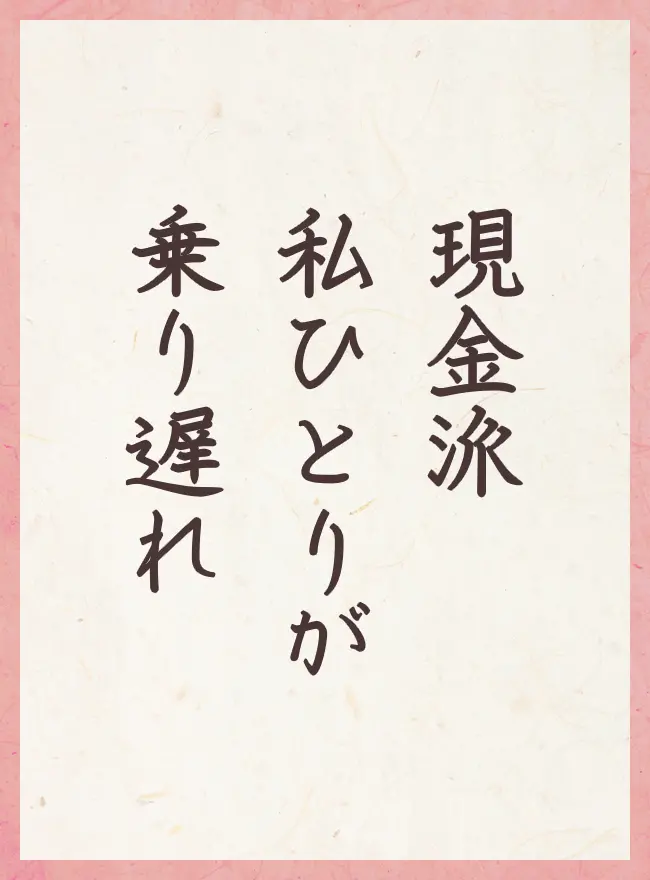 現金派
私ひとりが
乗り遅れ